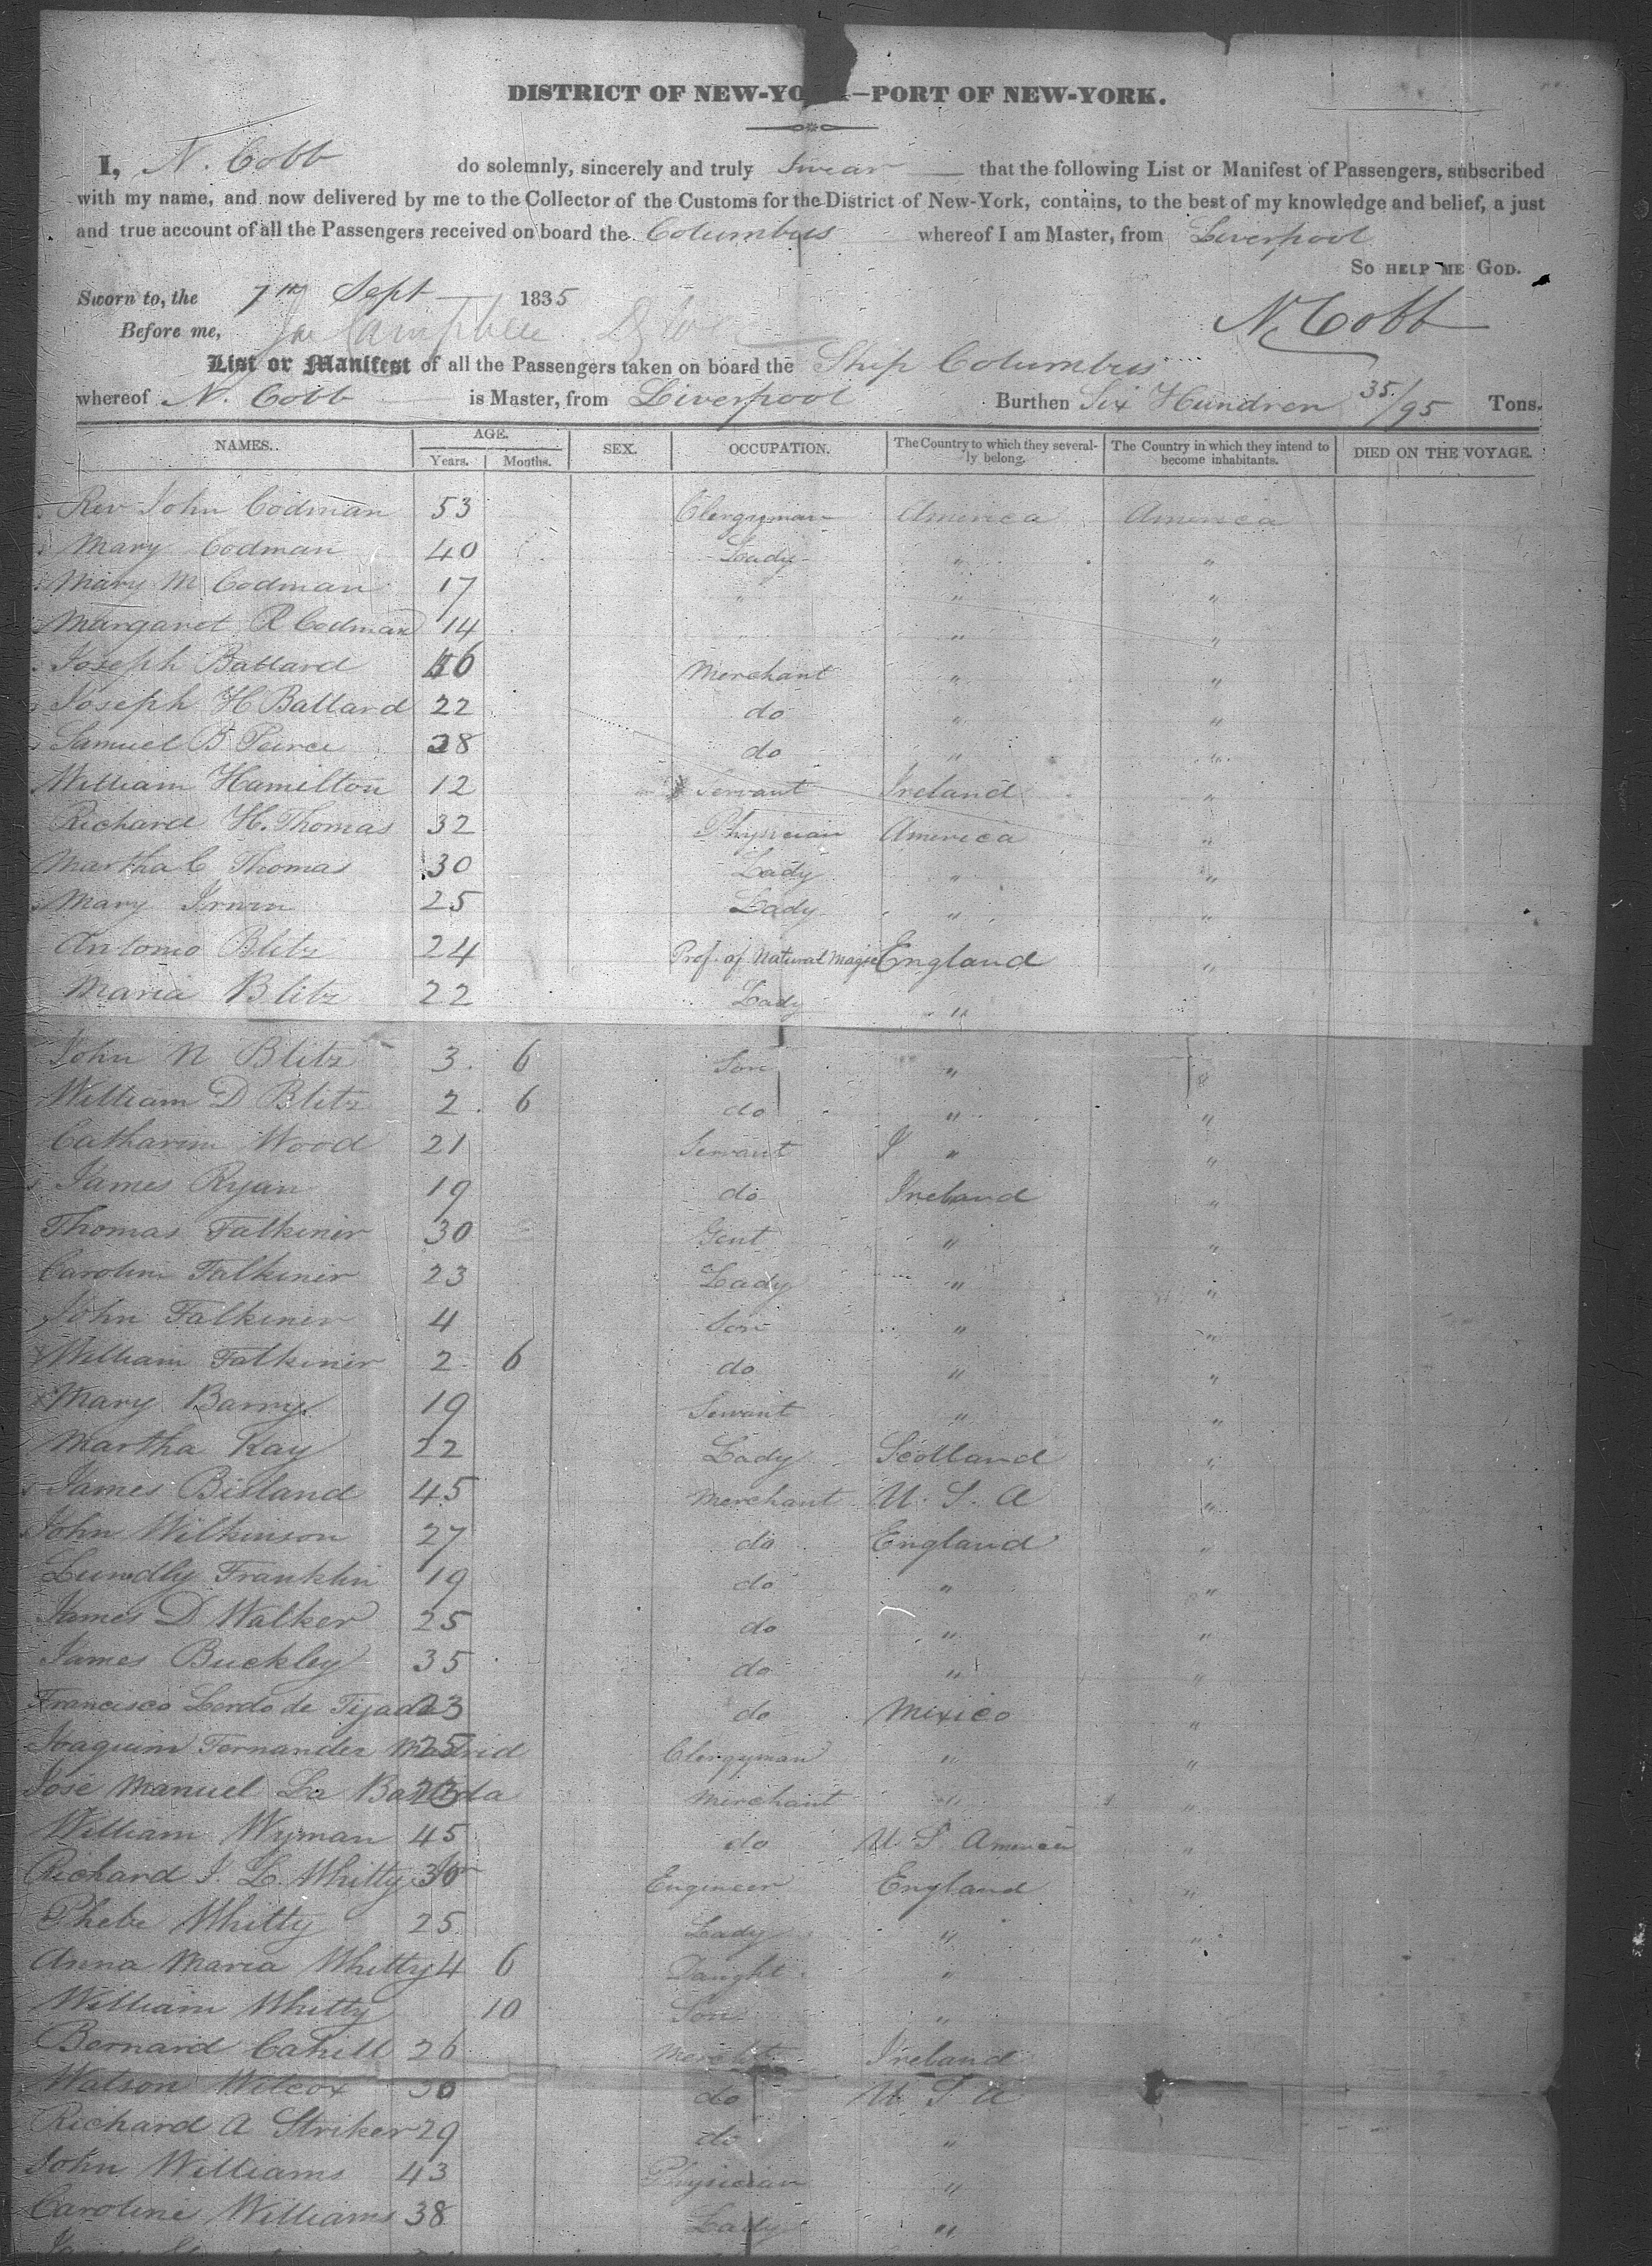 DISTRICT OF NEW-YO —PORT OF NEW-YORK.
I, N. Cobb do solemnly, sincerely and truly Swear that the following List or Manifest of Passengers, subscribed
with my name, and now delivered by me to the Collector of the Customs for the District of New-York, contains, to the best of my knowledge and belief, a just
and true account of all the Passengers received on board the Columbus whereof I am Master, from Liverpool
So HELP ME GOD.
Sworn to, the 7th Sept 1835
N. Cobb
Before me, Campbell
List or Manifest of all the Passengers taken on board the Ship Columbus
whereof N. Cobb is Master, from Liverpool Burthen Six Hundren 35/95 Tons.
NAMES. AGE. Years. Months. SEX. OCCUPATION. The Country to which they severally belong. The Country in which they intend to become inhabitants. DIED ON THE VOYAGE.
Rev John Codman 53 Clergyman America America
Mary Codman 40 Lady " "
Mary M Codman 17 " " "
Margaret R Codman 14 " "
Joseph Ballard 46 Merchant " "
Joseph H Ballard 22 do " "
Samuel B Peirce 28 do " "
William Hamilton 12 Servant Ireland "
Richard H. Thomas 32 Physician America "
Martha C Thomas 30 Lady " "
Mary Irwin 25 Lady " "
Antonio Blitz 24 Prof. of Natural Magic England "
Maria Blitz 22 Lady "
John N Blitz 3 6 Son " "
William D Blitz 2 6 do " "
Catharine Wood 21 Servant I " "
James Ryan 19 do Ireland "
Thomas Falkiner 30 Gent " "
Caroline Falkiner 23 Lady " "
John Falkiner 4 Son " "
William Falkiner 2 6 do " "
Mary Barry 19 Servant " "
Martha Kay 22 Lady Scotland "
James Bisland 45 Merchant U. S. A "
John Wilkinson 27 do England "
Lundly Franklin 19 do " "
James D Walker 25 do " "
James Buckley 35 do " "
Francisco Lerdo de Tejada 23 do Mexico "
Joaquim Fernandez Madrid 25 Clergyman " "
Jose Manuel La 23 Merchant " "
William Wyman 45 do U. S. America "
Richard J. L. Whitty 30 Engineer England "
Phebe Whitty 25 Lady " "
Anna Maria Whitty 4 6 Daught "
William Whitty 10 Son "
Bernard Cahill 26 Mercht Ireland
Watson Wilcox 30 do U S A
Richard A Striker 29 do "
John Williams 43 Physician "
Caroline Williams 38 Lady "